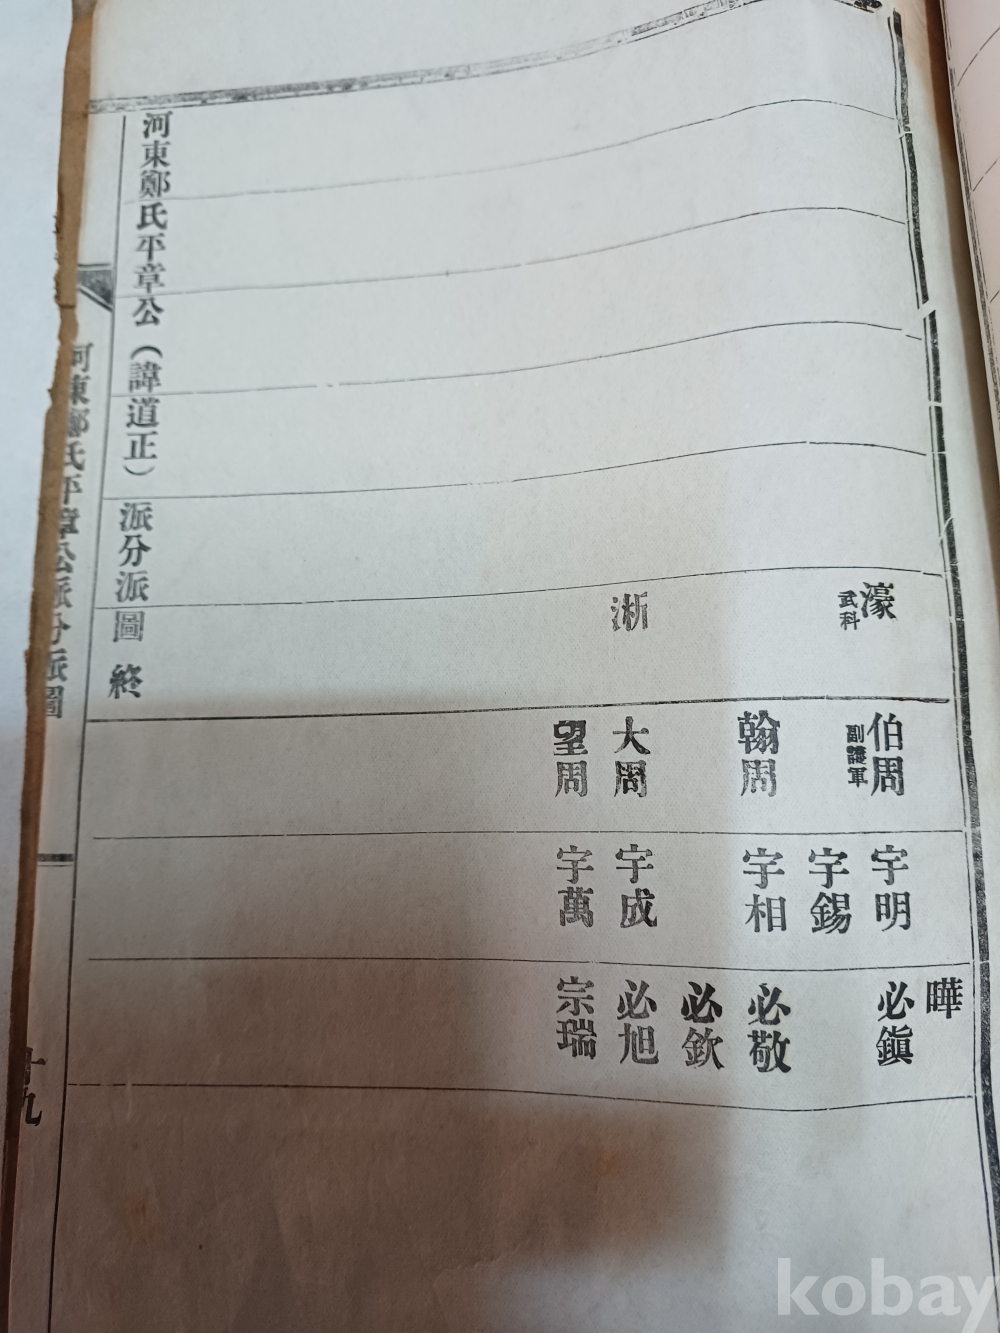 曄
濠
武科
伯周
副護軍
宇明
必鎭
宇錫
翰周
宇相
必敬
必欽
淅
大周
宇成
必旭
望周
宇萬
宗瑞
河東鄭氏平章公（諱道正）派分派圖 終
河東鄭氏平章公派分派圖
十九
kobay